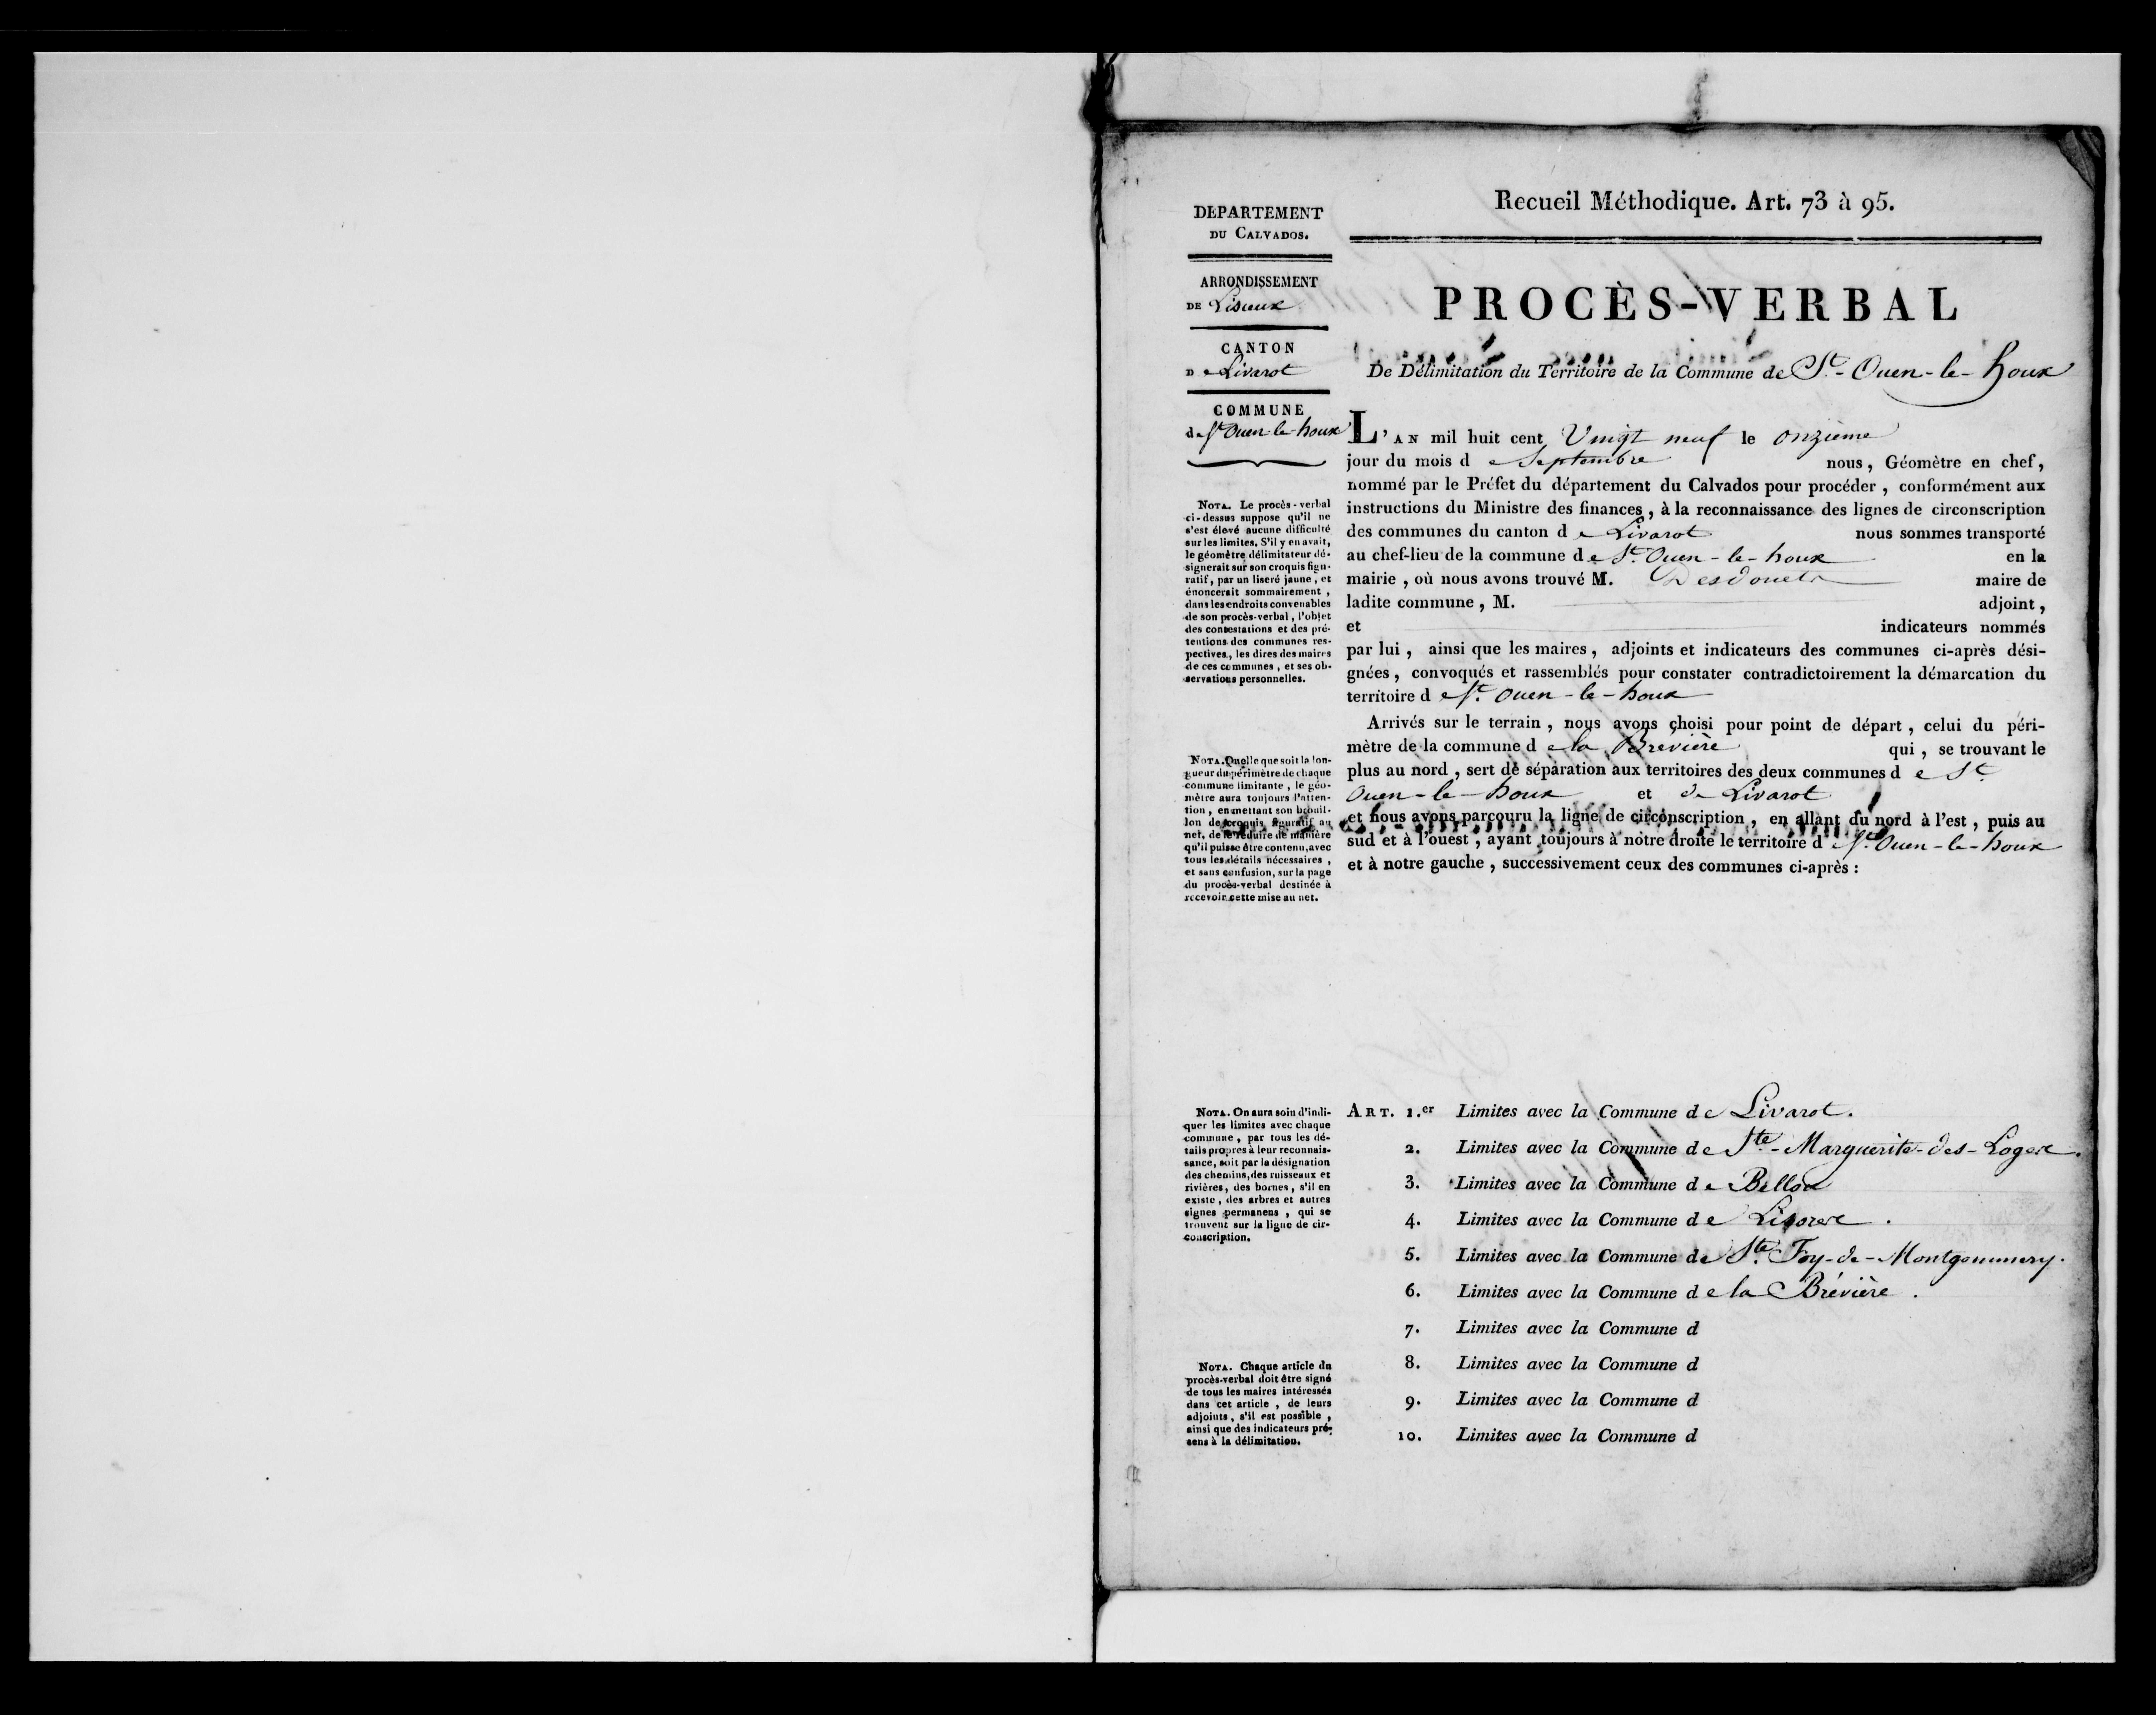 DEPARTEMENT
DU CALVADOS.
ARRONDISSEMENT
DE Lisieux
CANTON
D e Livarot
COMMUNE
de St Ouen-le-houx
NOTA. Le procès-verbal
ci-dessus suppose qu'il ne
s'est élevé aucune difficulté
sur les limites. S'il y en avait,
le géomètre délimitateur dé-
signerait sur son croquis figu-
ratif, par un liseré jaune, et
énoncerait sommairement,
dans les endroits convenables
de son procès-verbal, l'objet
des contestations et des pré-
tentions des communes res-
pectives, les dires des maires
de ces communes, et ses ob-
servations personnelles.
NOTA. Quelle que soit la lon-
gueur du périmètre de chaque
commune limitante, le géo-
mètre aura toujours l'atten-
tion, en mettant son brouil-
lon de croquis figuratif au
net, de le réduire de manière
qu'il puisse être contenu, avec
tous les détails nécessaires,
et sans confusion, sur la page
du procès-verbal destinée à
recevoir cette mise au net.
NOTA. On aura soin d'indi-
quer les limites avec chaque
commune, par tous les dé-
tails propres à leur reconnais-
sance, soit par la désignation
des chemins, des ruisseaux et
rivières, des bornes, s'il en
existe, des arbres et autres
signes permanens, qui se
trouvent sur la ligne de cir-
conscription.
NOTA. Chaque article du
procès-verbal doit être signé
de tous les maires intéressés
dans cet article, de leurs
adjoints, s'il est possible,
ainsi que des indicateurs pré-
sens à la délimitation.
Recueil Méthodique. Art. 73 à 95.
PROCÈS-VERBAL
De Délimitation du Territoire de la Commune de St.-Ouen-le-houx
L'AN mil huit cent Vingt neuf le onzieme
jour du mois d e Septembre nous, Géomètre en chef,
nommé par le Préfet du département du Calvados pour procéder, conformément aux
instructions du Ministre des finances, à la reconnaissance des lignes de circonscription
des communes du canton d e Livarot nous sommes transporté
au chef-lieu de la commune de St. Ouen-le-houx en la
mairie, où nous avons trouvé M. Desdouets maire de
ladite commune, M. adjoint,
et indicateurs nommés
par lui, ainsi que les maires, adjoints et indicateurs des communes ci-après dési-
gnées, convoqués et rassemblés pour constater contradictoirement la démarcation du
territoire d e St. Ouen-le-houx
Arrivés sur le terrain, nous avons choisi pour point de départ, celui du péri-
mètre de la commune d e la Brévière qui, se trouvant le
plus au nord, sert de séparation aux territoires des deux communes d e St.
Ouen-le-houx et de Livarot
et nous avons parcouru la ligne de circonscription, en allant du nord à l'est, puis au
sud et à l'ouest, ayant toujours à notre droite le territoire d e St. Ouen-le-houx
et à notre gauche, successivement ceux des communes ci-après :
ART. 1.er Limites avec la Commune de Livarot.
2. Limites avec la Commune de Ste.-Marguerite-des-Loges.
3. Limites avec la Commune de Bellou
4. Limites avec la Commune de Lisores.
5. Limites avec la Commune de Ste. Foy-de-Montgommery.
6. Limites avec la Commune d e la Brévière.
7. Limites avec la Commune d
8. Limites avec la Commune d
9. Limites avec la Commune d
10. Limites avec la Commune d